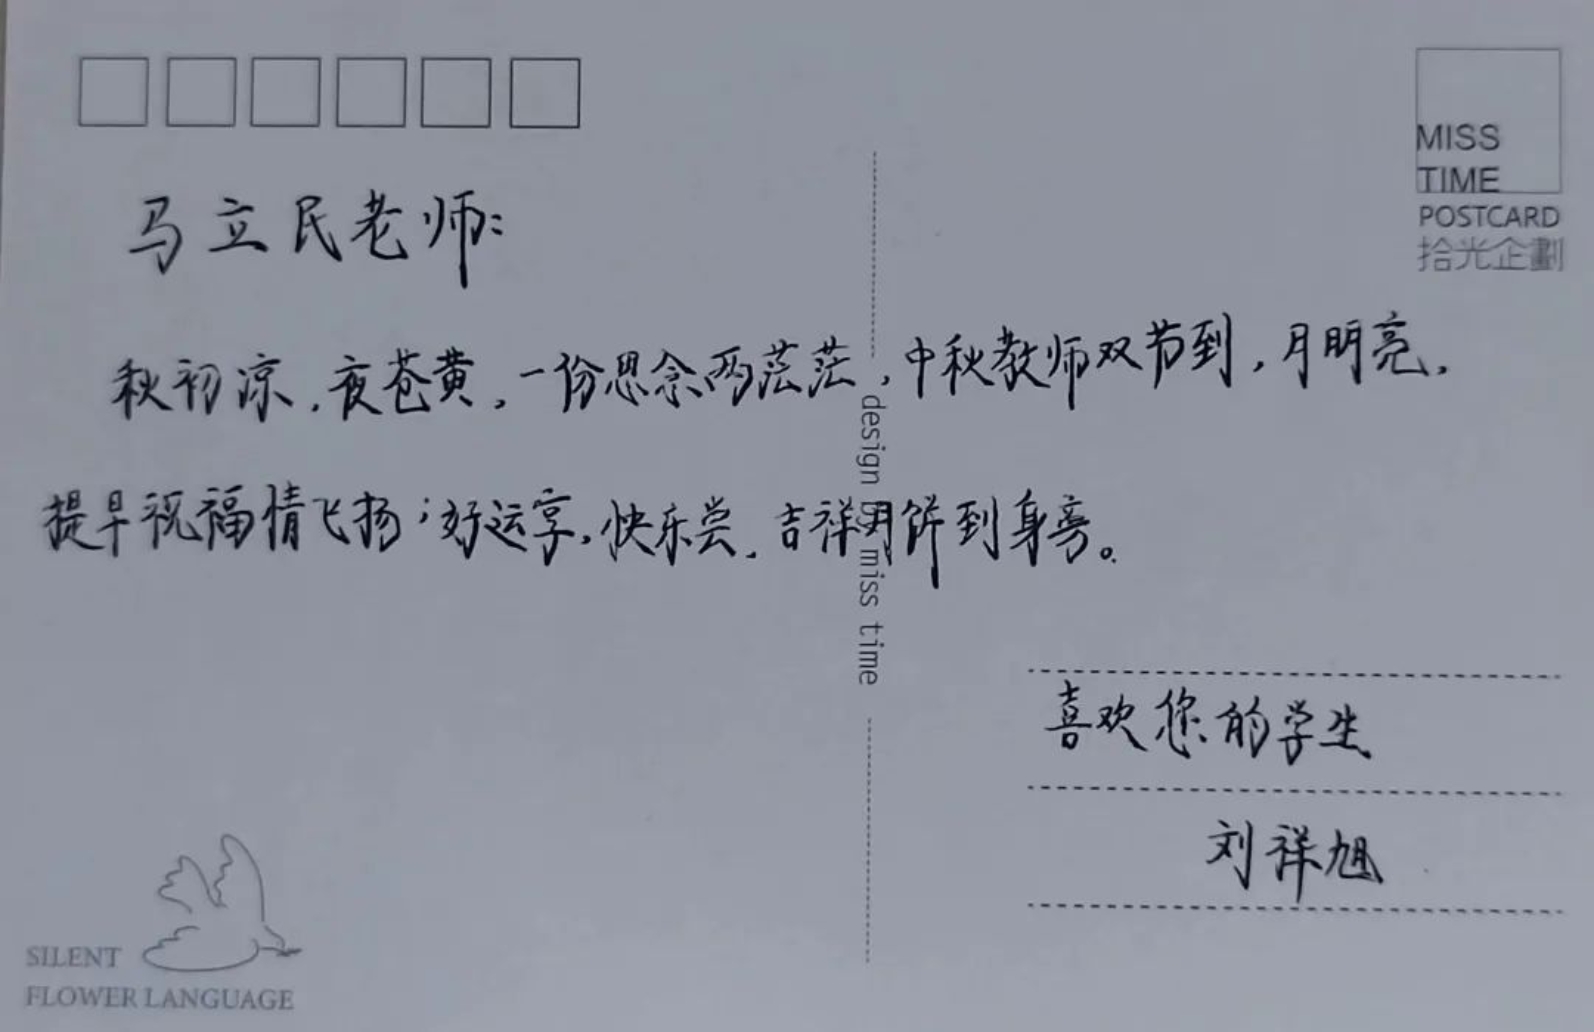 MISS
TIME
POSTCARD
拾光企劃
马立民老师:
秋初凉,夜苍黄,一份思念两茫茫,中秋教师双节到,月明亮,
提早祝福情飞扬;好运享,快乐尝,吉祥月饼到身旁。
design by miss time
喜欢您的学生
刘祥旭
SILENT
FLOWER LANGUAGE